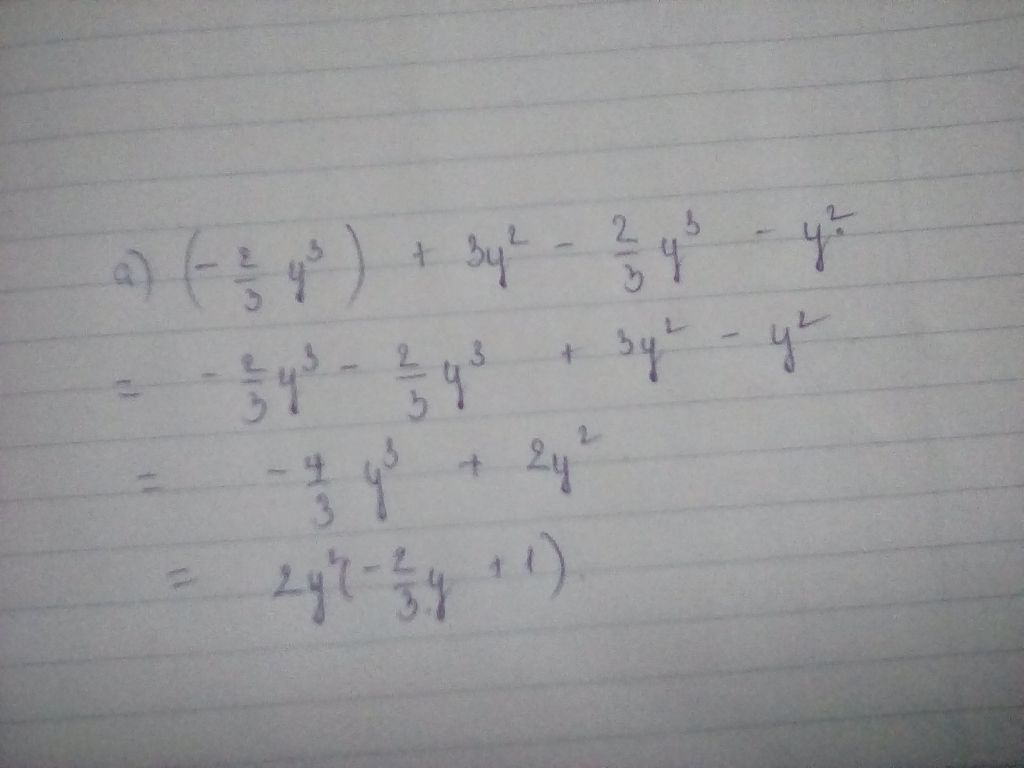 a) (-2/3 y³) + 3y² - 2/3 y³ - y².
= -2/3 y³ - 2/3 y³ + 3y² - y²
= -4/3 y³ + 2y²
= 2y²(-2/3 y + 1)